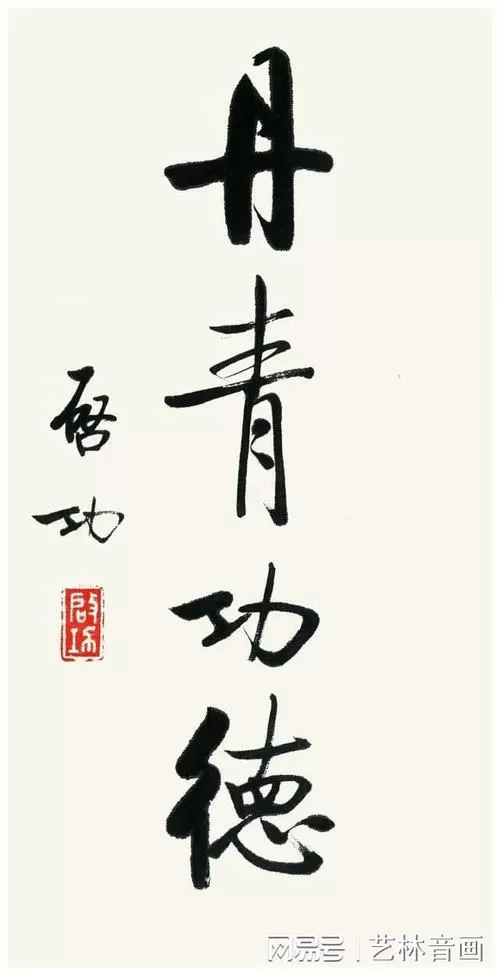 丹青功德
启功
啟功
网易号 | 艺林音画